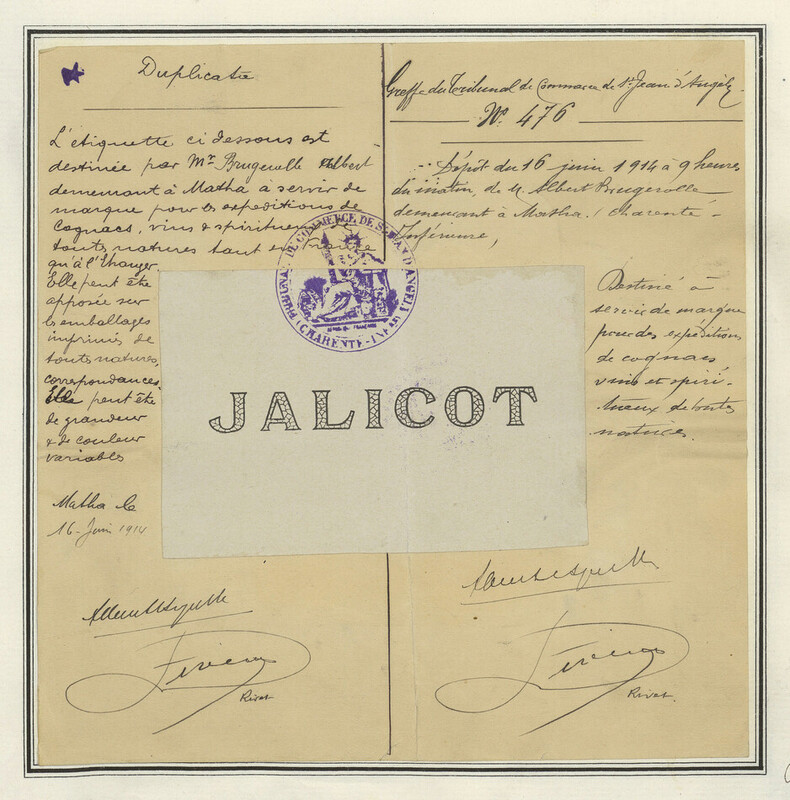 Duplicata
L'étiquette ci dessous est
destinée par Mr Brugerolle Albert
demeurant à Matha à servir de
marque pour les expéditions de
Cognacs, vins & spiritueux de
toutes natures tant en France
qu'à l'étranger
Elle peut être
apposée sur
les emballages
imprimés de
toutes natures,
correspondances.
Elle peut être
de grandeur
& de couleur
variables
Matha le
16 Juin 1914
Rivet
Greffe du Tribunal de Commerce de St Jean d'Angély
No 476
Dépôt du 16 juin 1914 à 9 heures
du matin, de M. Albert Brugerolle
demeurant à Matha (Charente-
Inférieure,
Destiné à
servir de marque
pour des expéditions
de cognacs,
vins et spiri-
tueux de toutes
natures.
Rivet
TRIBUNAL DE COMMERCE DE ST JEAN D'ANGELY
(CHARENTE-INFRE)
JALICOT